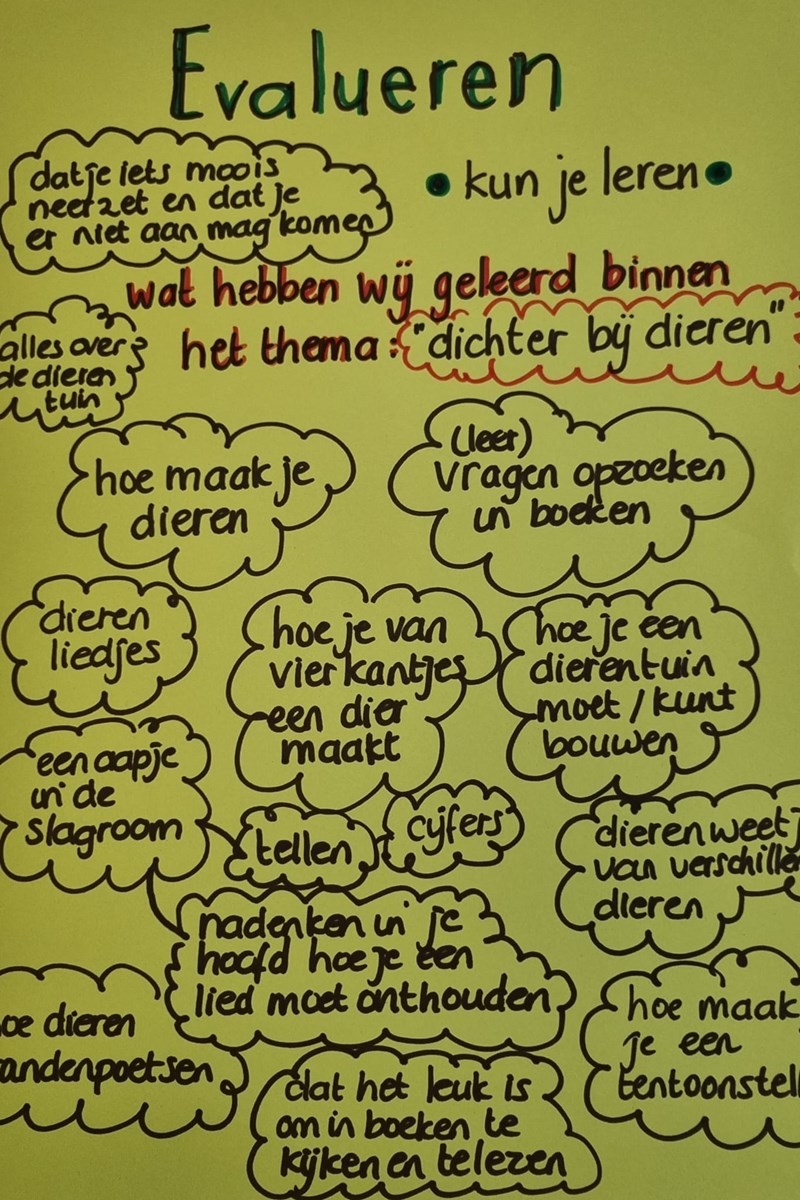 Evalueren
• kun je leren •
dat je iets moois
neerzet en dat je
er niet aan mag komen
wat hebben wij geleerd binnen
het thema: "dichter bij dieren"
alles over
de dieren
tuin
hoe maak je
dieren
(leer)
vragen opzoeken
in boeken
dieren
liedjes
hoe je van
vierkantjes
een dier
maakt
hoe je een
dierentuin
moet / kunt
bouwen
een aapje
in de
slagroom
tellen
cijfers
dieren weetj
van verschille
dieren
nadenken in je
hoofd hoe je een
lied moet onthouden
oe dieren
andenpoetsen
hoe maak
je een
tentoonstell
dat het leuk is
om in boeken te
kijken en te lezen